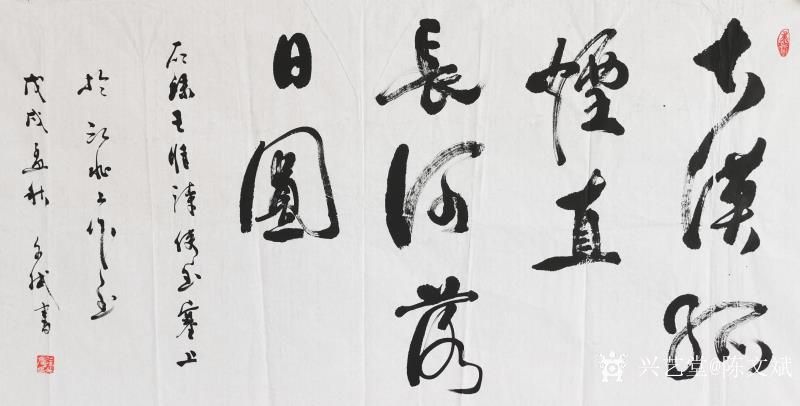 大漠孤
煙直
長河落
日圓
右錄王維詩使至塞上
於江北工作室
戊戌孟秋文斌書
兴艺堂@陈文斌